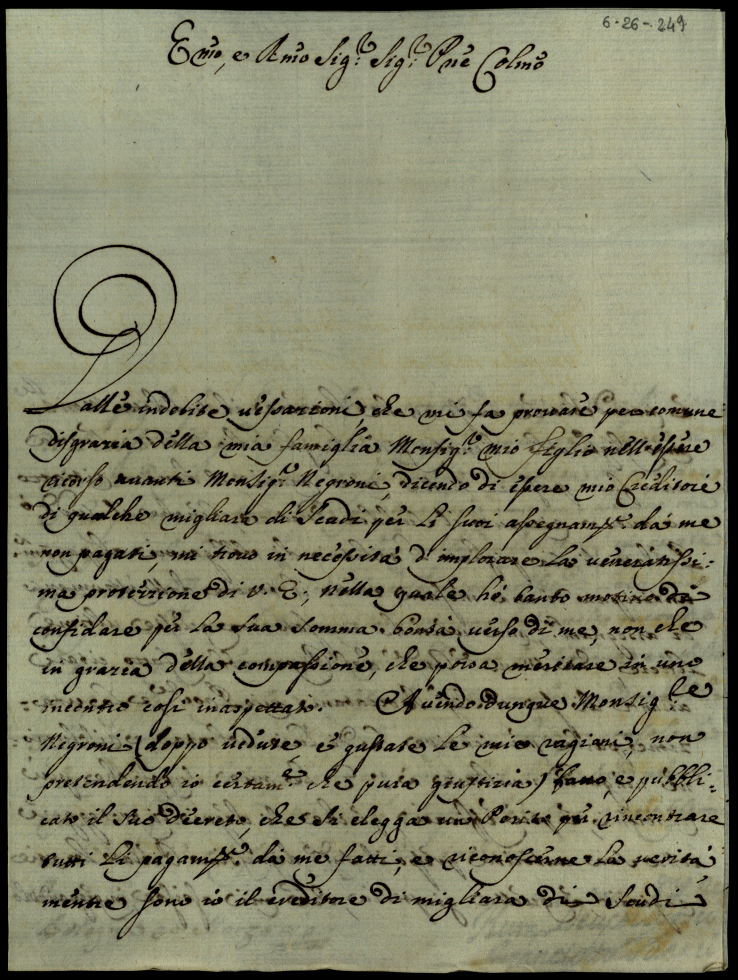 6-26-249
Emo, e Rmo Sig.re Sig.re Pne Colmo
Dalle indebite vessazioni, che mi fa provare per comune
disgrazia della mia famiglia Monsig.re mio figlio nell'essere
ricorso avanti Monsig.re Negroni, dicendo di essere mio Creditore
di qualche migliara di Scudi per li suoi assegnam.ti da me
non pagati, mi trovo in necessità d'implorare la veneratissi:
ma protezzione di V. E., nella quale hò tanto motivo di
confidare per la sua somma bontà verso di me, non che
in grazia della compassione, che possa meritare in uno
incontro così inaspettato. Avendo dunque Monsig.re
Negroni (doppo vedute, e gustate le mie ragioni, non
pretendendo io certam.e che pura giustizia) fatto, e pubbli:
cato il suo decreto, che si elegga un Perito per rincontrare
tutti li pagam.ti da me fatti, e riconoscerne la verità
mentre sono io il creditore di migliara di Scudi